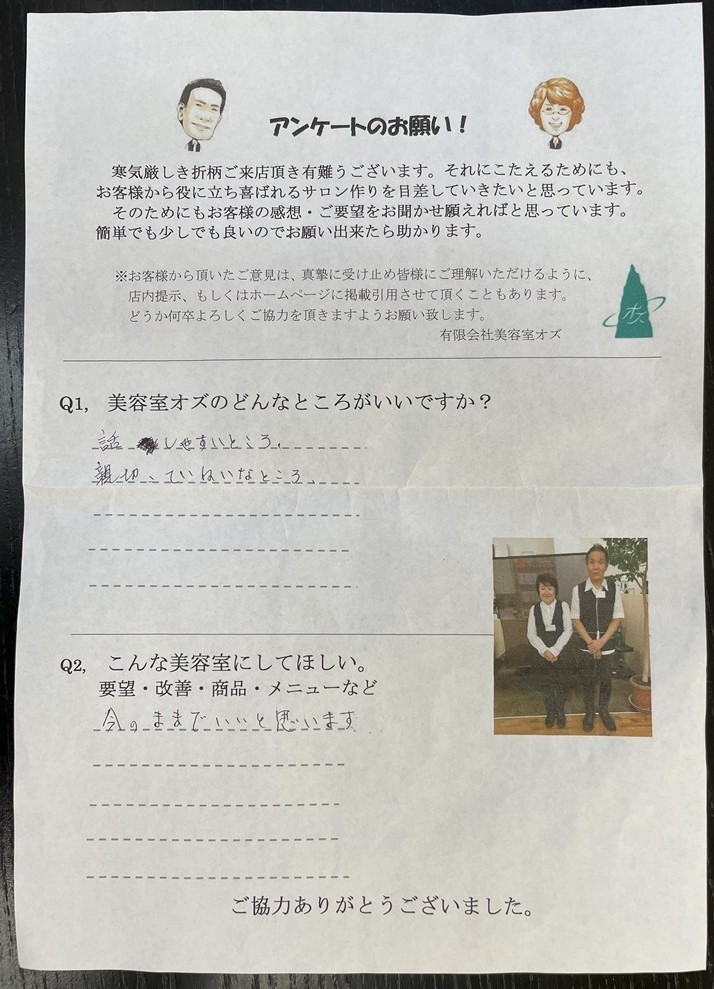 アンケートのお願い！
寒気厳しき折柄ご来店頂き有難うございます。それにこたえるためにも、
お客様から役に立ち喜ばれるサロン作りを目差していきたいと思っています。
そのためにもお客様の感想・ご要望をお聞かせ願えればと思っています。
簡単でも少しでも良いのでお願い出来たら助かります。
※お客様から頂いたご意見は、真摯に受け止め皆様にご理解いただけるように、
店内提示、もしくはホームページに掲載引用させて頂くこともあります。
どうか何卒よろしくご協力を頂きますようお願い致します。
有限会社美容室オズ
オズ
Q1, 美容室オズのどんなところがいいですか？
話 しやすいところ、
親切、ていねいなところ、
Q2, こんな美容室にしてほしい。
要望・改善・商品・メニューなど
今のままでいいと思います
ご協力ありがとうございました。